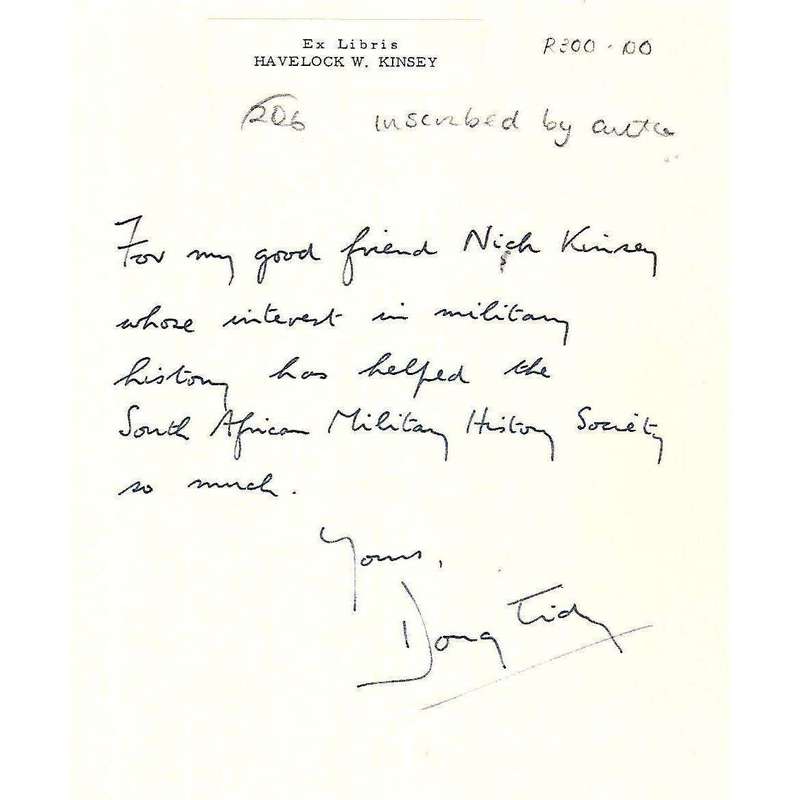 Ex Libris
HAVELOCK W. KINSEY
R300-00
206 inscribed by author
For my good friend Nick Kinsey
whose interest in military
history has helped the
South African Military History Society
so much.
Yours,
Doug Tidy